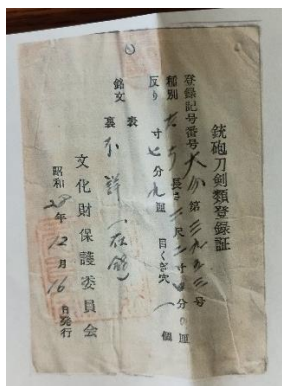 銃砲刀剣類登録証
登録記号番号 大分 第三九五三号
種別 長さ 二尺二寸 分 厘
反り 寸七分九厘 目くぎ穴 一個
銘文 表
裏 不詳(在銘)
文化財保護委員会
昭和28年12月16日発行